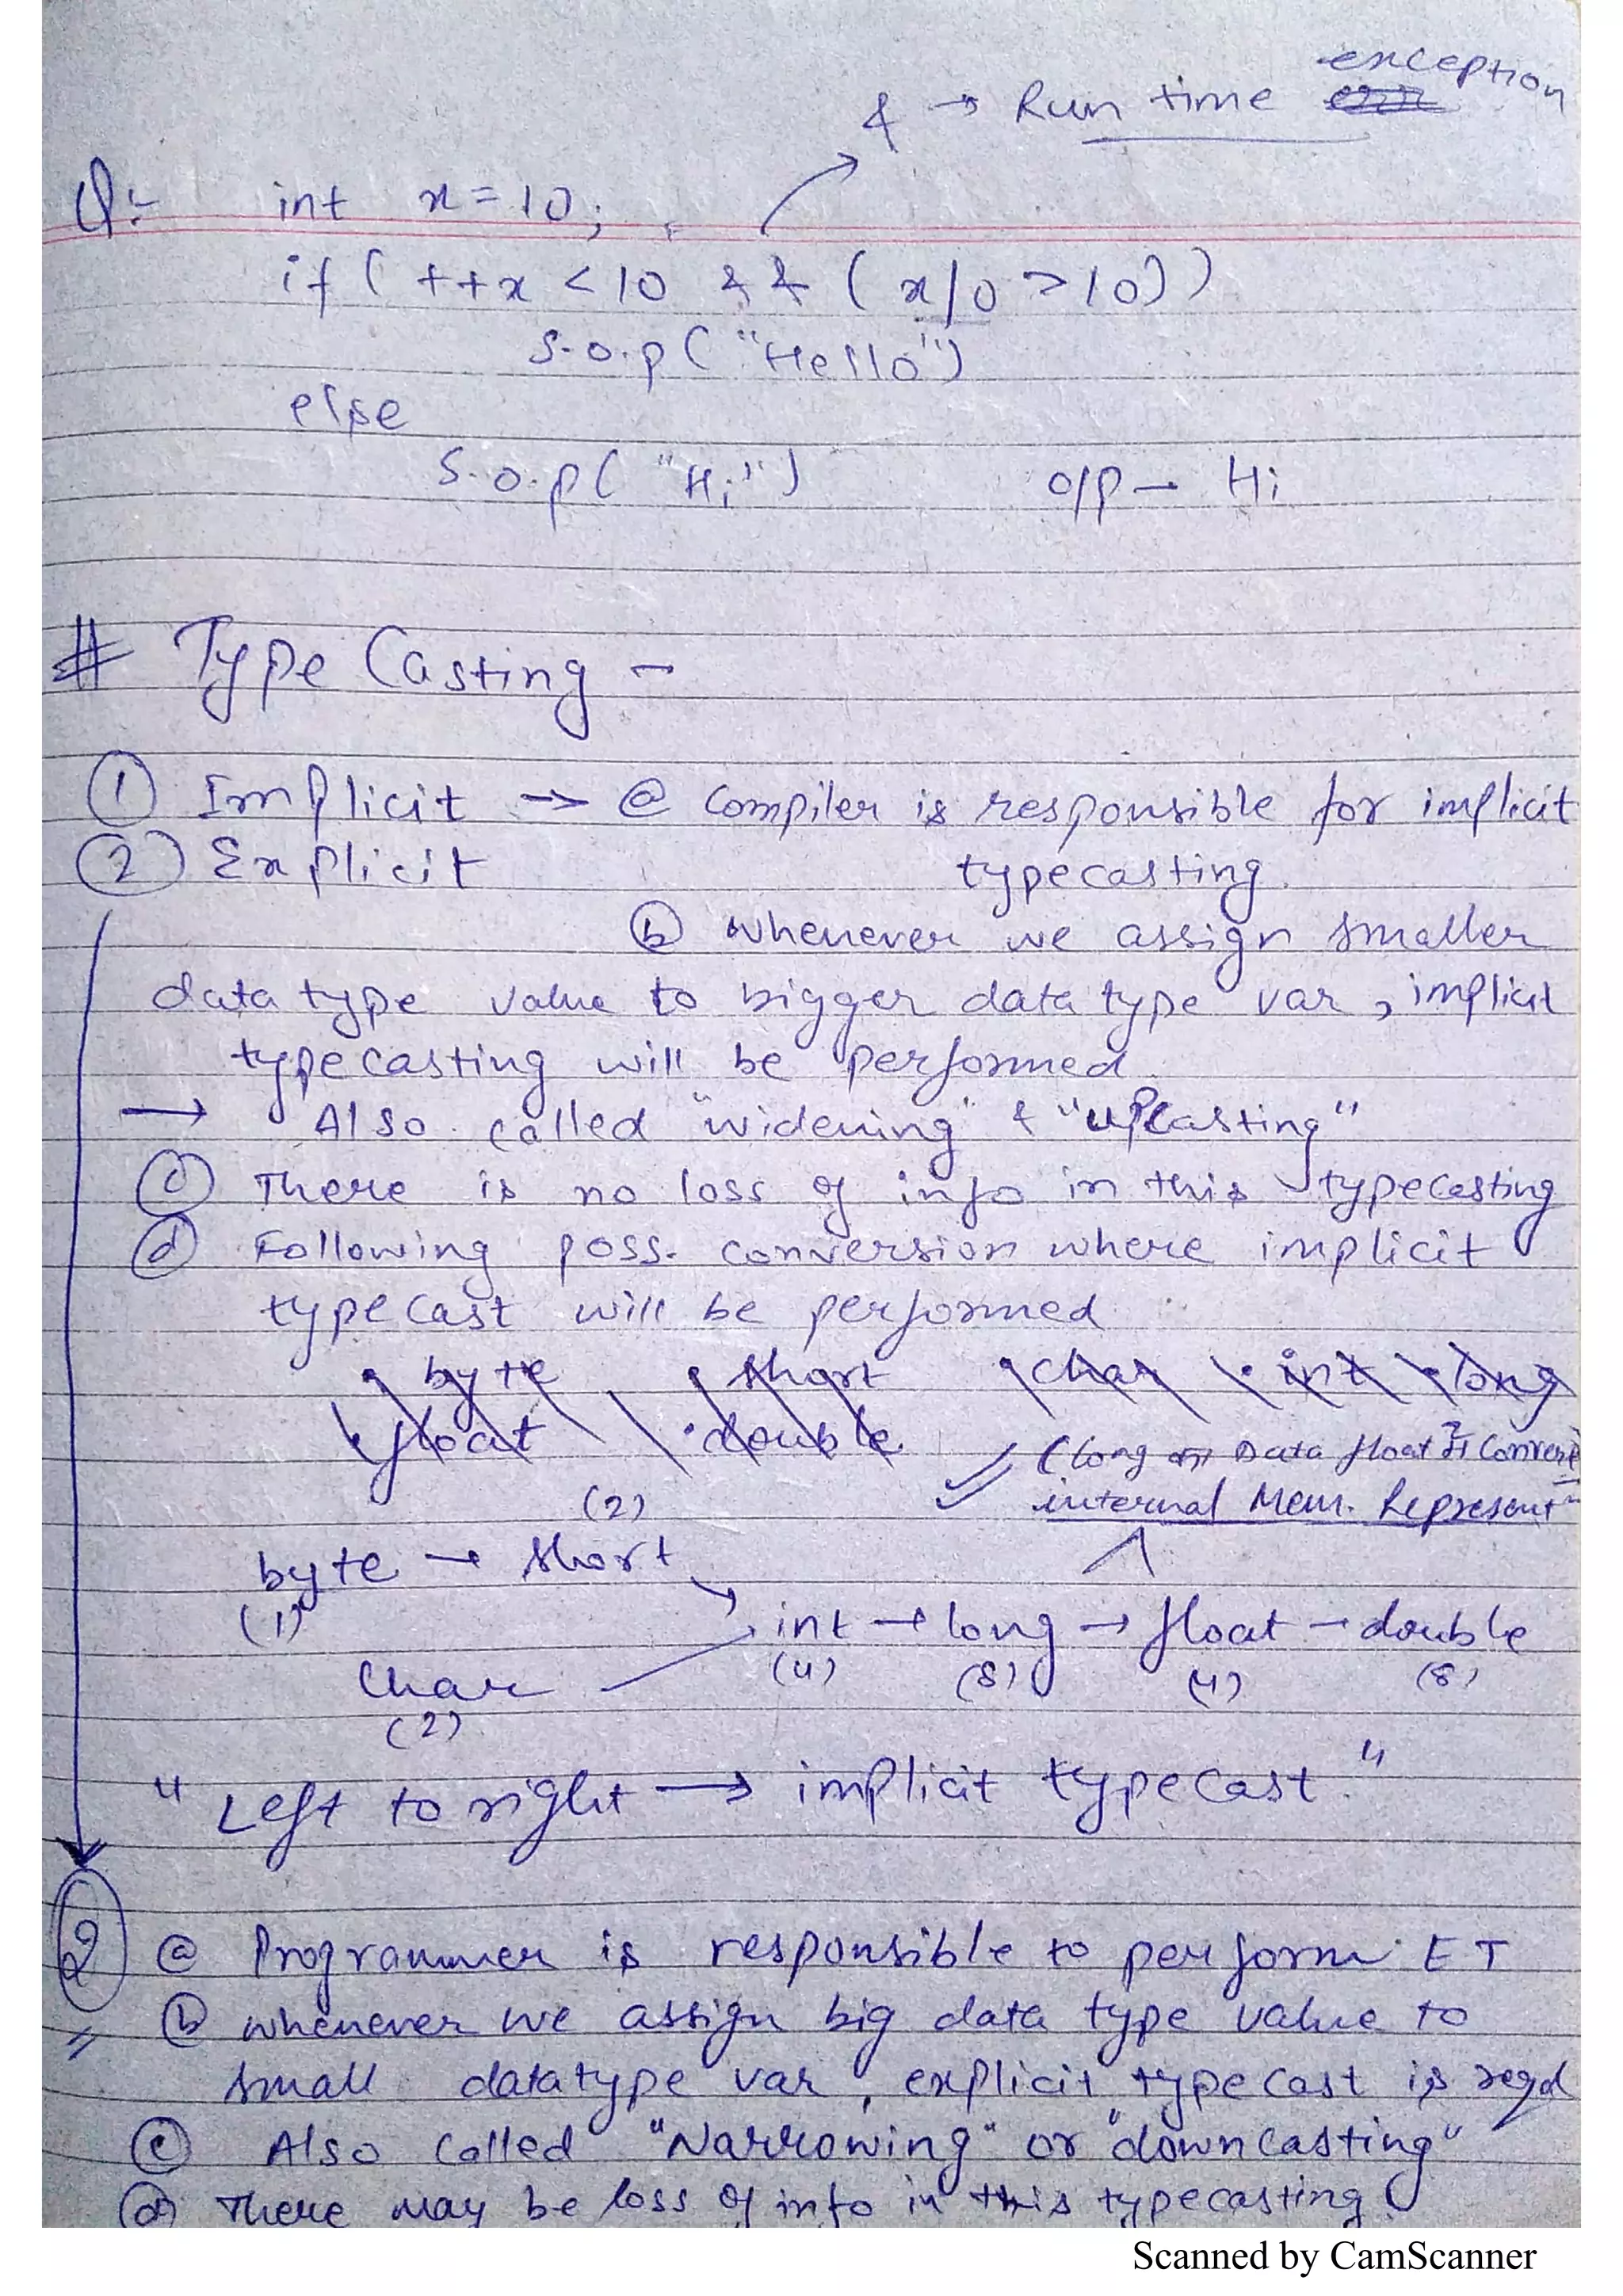 & → Run time exception
Q:- int x = 10;
if ( ++x < 10 && ( x/0 > 10))
S.o.p ( "Hello")
else
S.o.p ( "Hi") o/p - Hi
# Type Casting -
① Implicit → ⓐ Compiler is responsible for implicit
② Explicit typecasting.
ⓑ whenever we assign smaller
data type value to bigger data type var, implicit
typecasting will be performed
→ Also called "widening" & "upcasting"
ⓒ There is no loss of info in this typecasting
ⓓ Following poss. conversion where implicit
typecast will be performed
• byte • short • char • int • long
• float • double
(long Data float Convert
(2) internal Mem. Represent
byte → short
(1) int → long → float → double
char (4) (8) (4) (8)
(2)
"Left to right → implicit typecast."
② ⓐ Programmer is responsible to perform ET
ⓑ whenever we assign big data type value to
small datatype var, explicit typecast is reqd
ⓒ Also called "Narrowing" or "downcasting"
ⓓ There may be loss of info in this typecasting.
Scanned by CamScanner